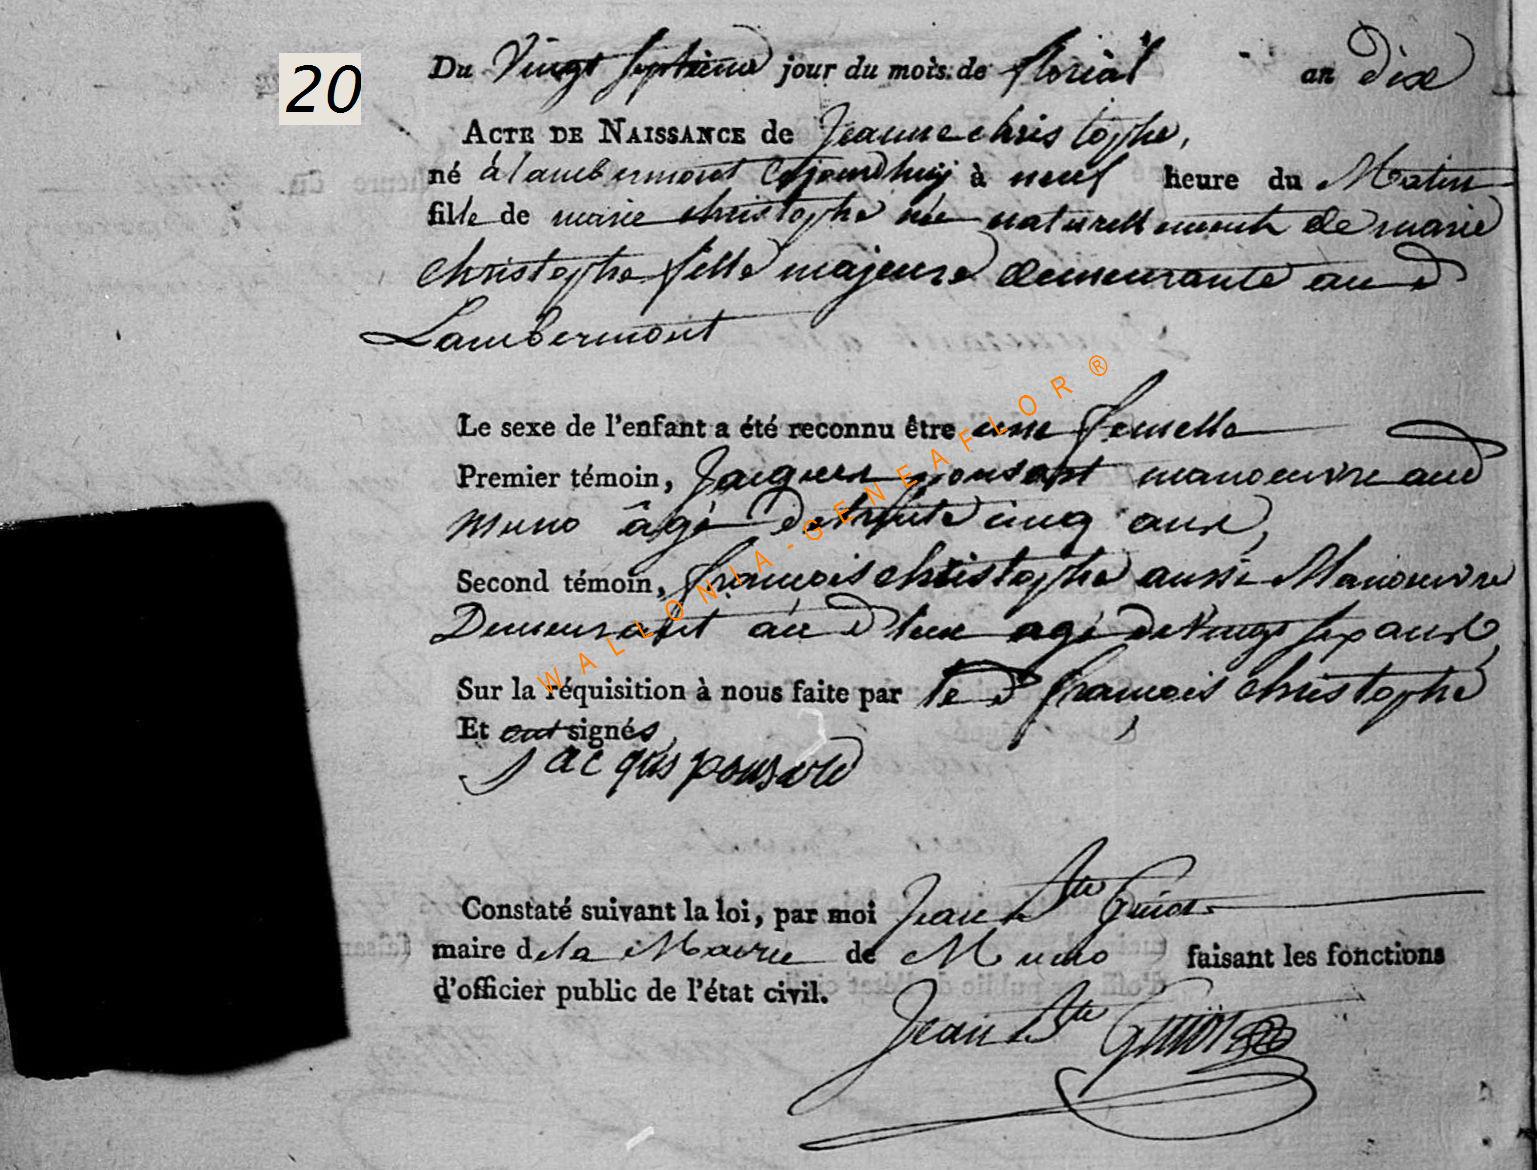 20
Du Vingt septieme jour du mois de florial an Dix
ACTE DE NAISSANCE de Jeanne christophe,
né à lambermont Cejourdhuy à neuf heure du Matin
fille de marie christophe née naturellement de marie
christophe fille majeure demeurante au d
Lambermont
Le sexe de l'enfant a été reconnu être une femelle
Premier témoin, Jacques ponsart manoeuvre aud
Muno âgé de trente cinq ans,
Second témoin, françois christophe aussi Manoeuvre
Demeurant au d lieu agé de Vingt six ans
Sur la réquisition à nous faite par le d françois christophe
Et ont signés
jacqus ponsard
Constaté suivant la loi, par moi Jean Bte Guiot
maire de la Mairie de Muno faisant les fonctions
d'officier public de l'état civil.
Jean Bte Guiot
WALLONIA-GENEAFLOR®